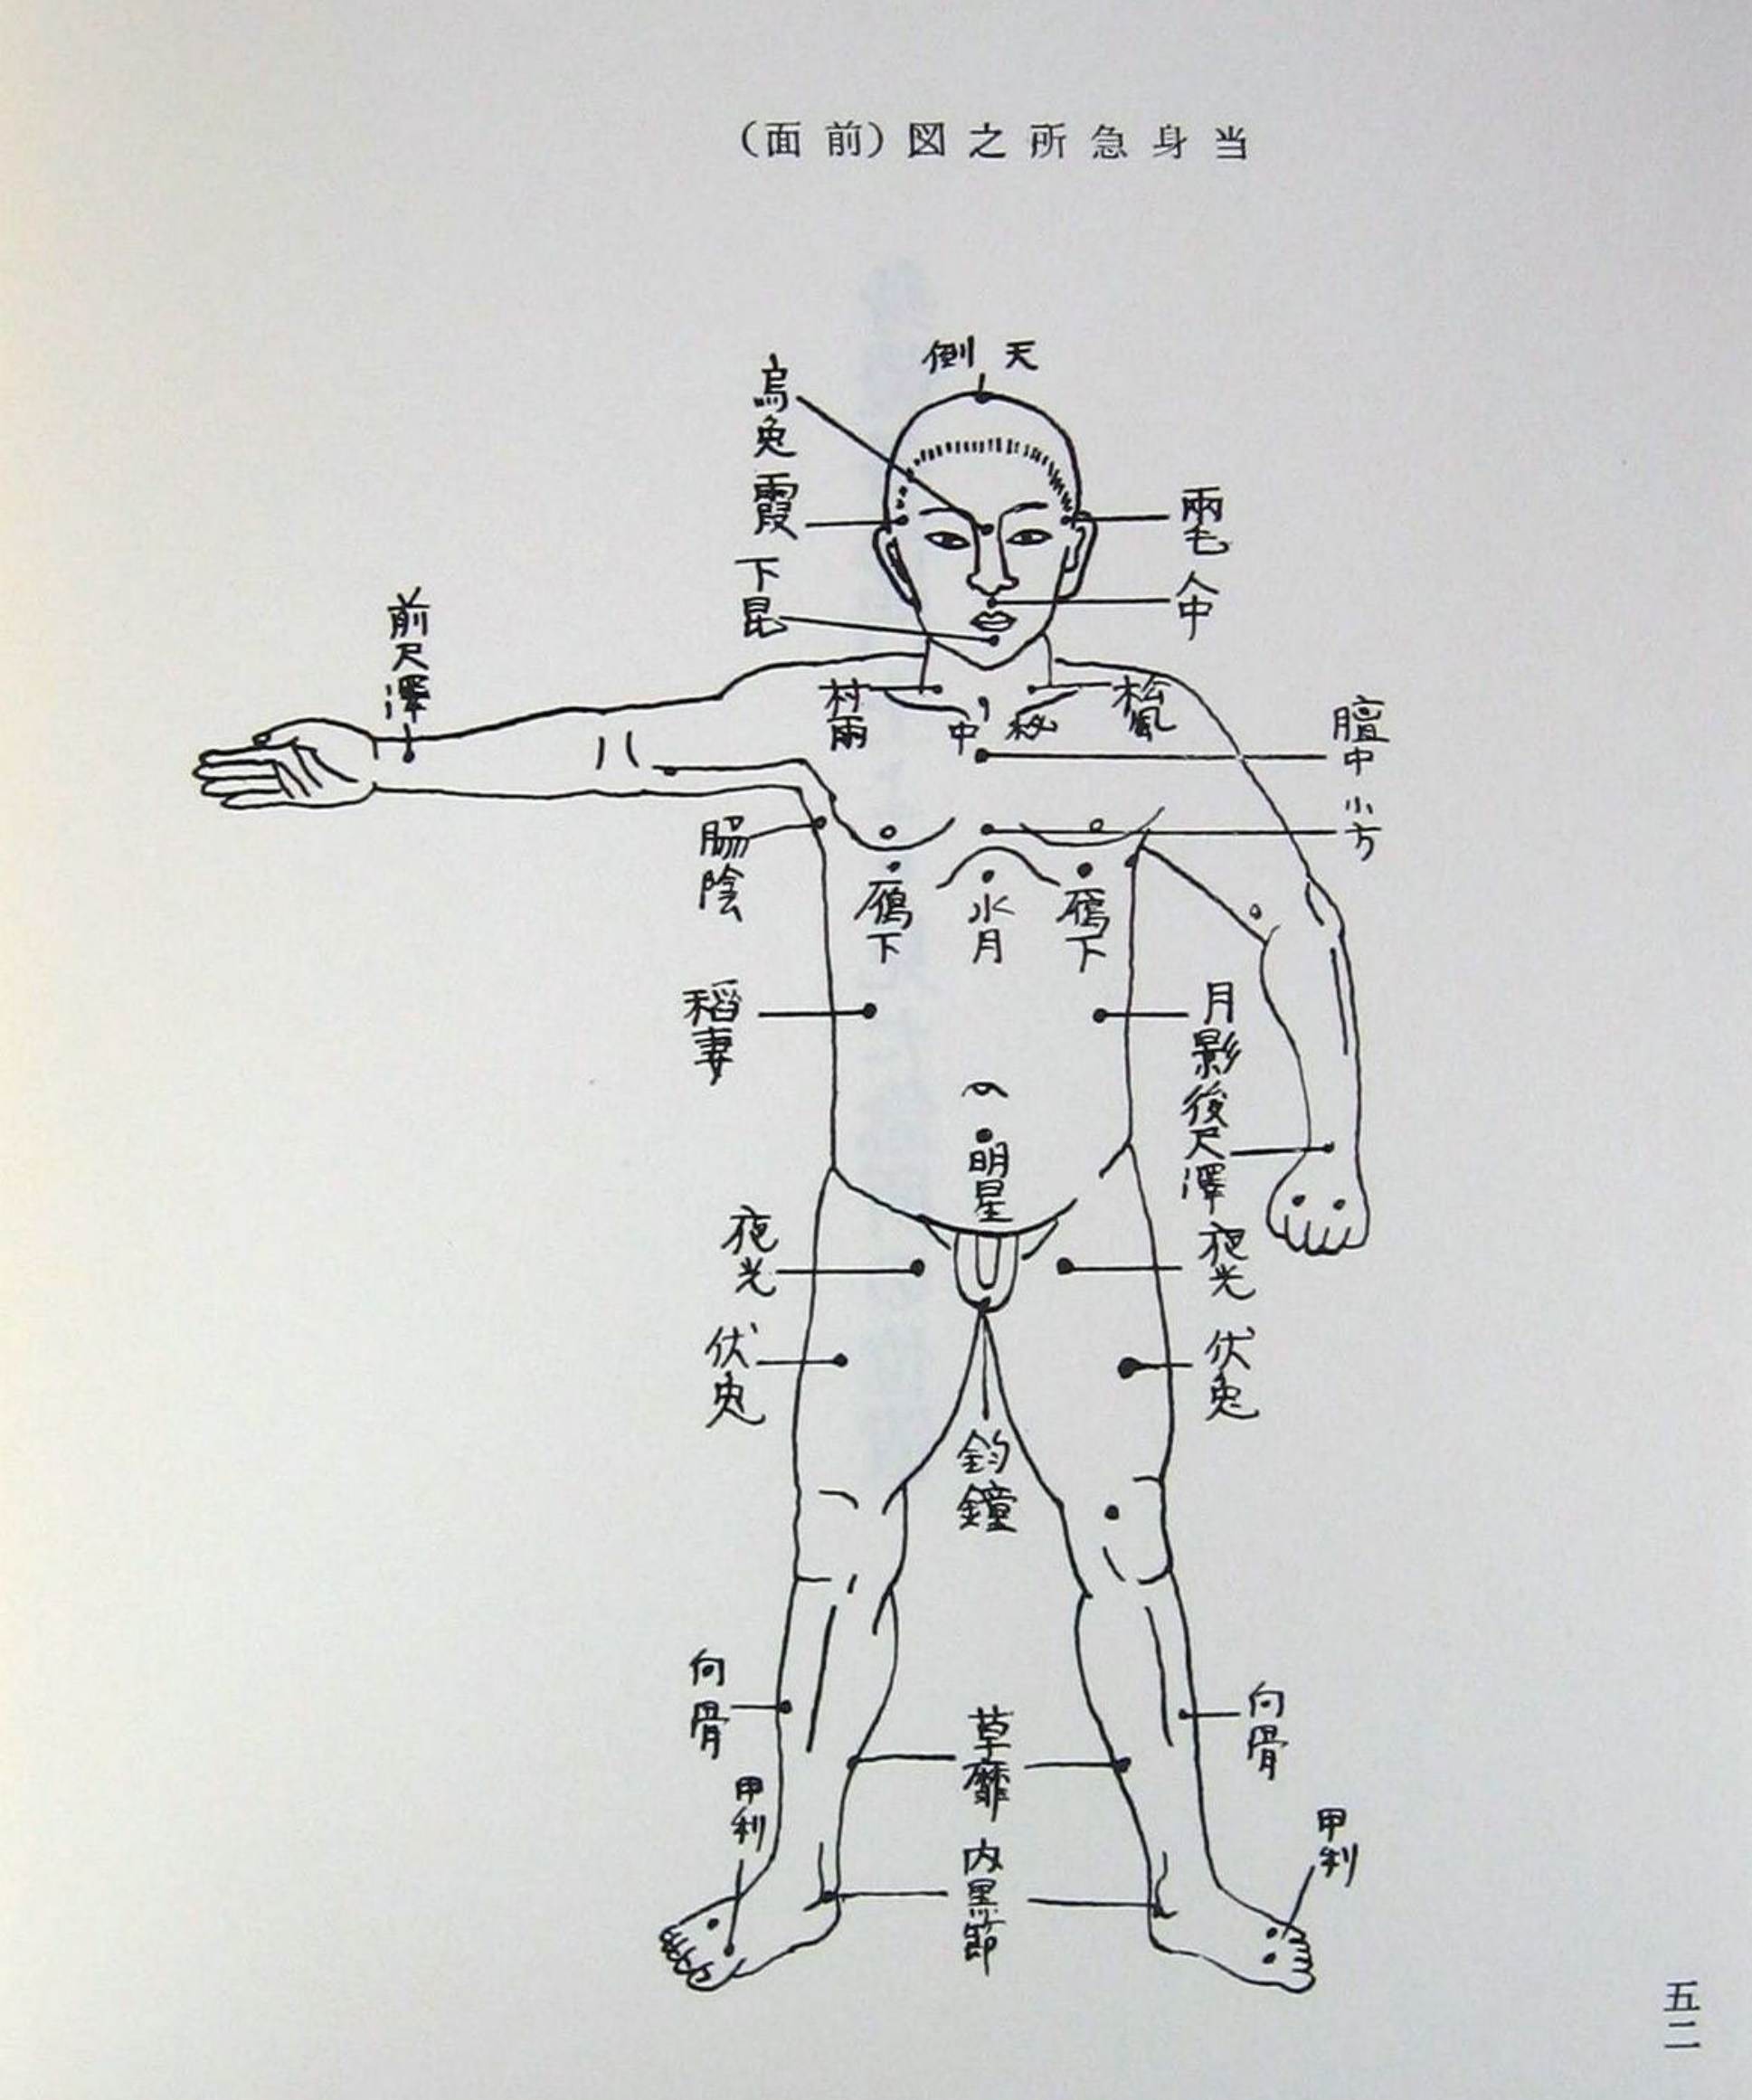 当身急所之図(前面)
天倒
烏兎
霞
下昆
両毛
人中
前尺澤
村雨
秘中
松風
膻中
小方
脇陰
鴈下
水月
鴈下
稲妻
月影
後尺澤
明星
夜光
夜光
伏兎
伏兎
釣鐘
向骨
向骨
草靡
甲利
甲利
内黒節
五二